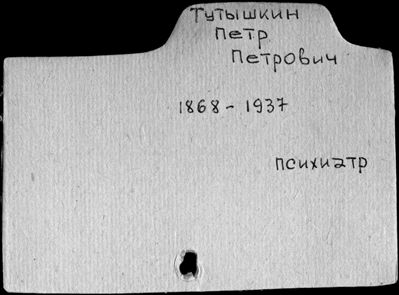 Тутышкин
Петр
Петрович
1868 - 1937
психиатр